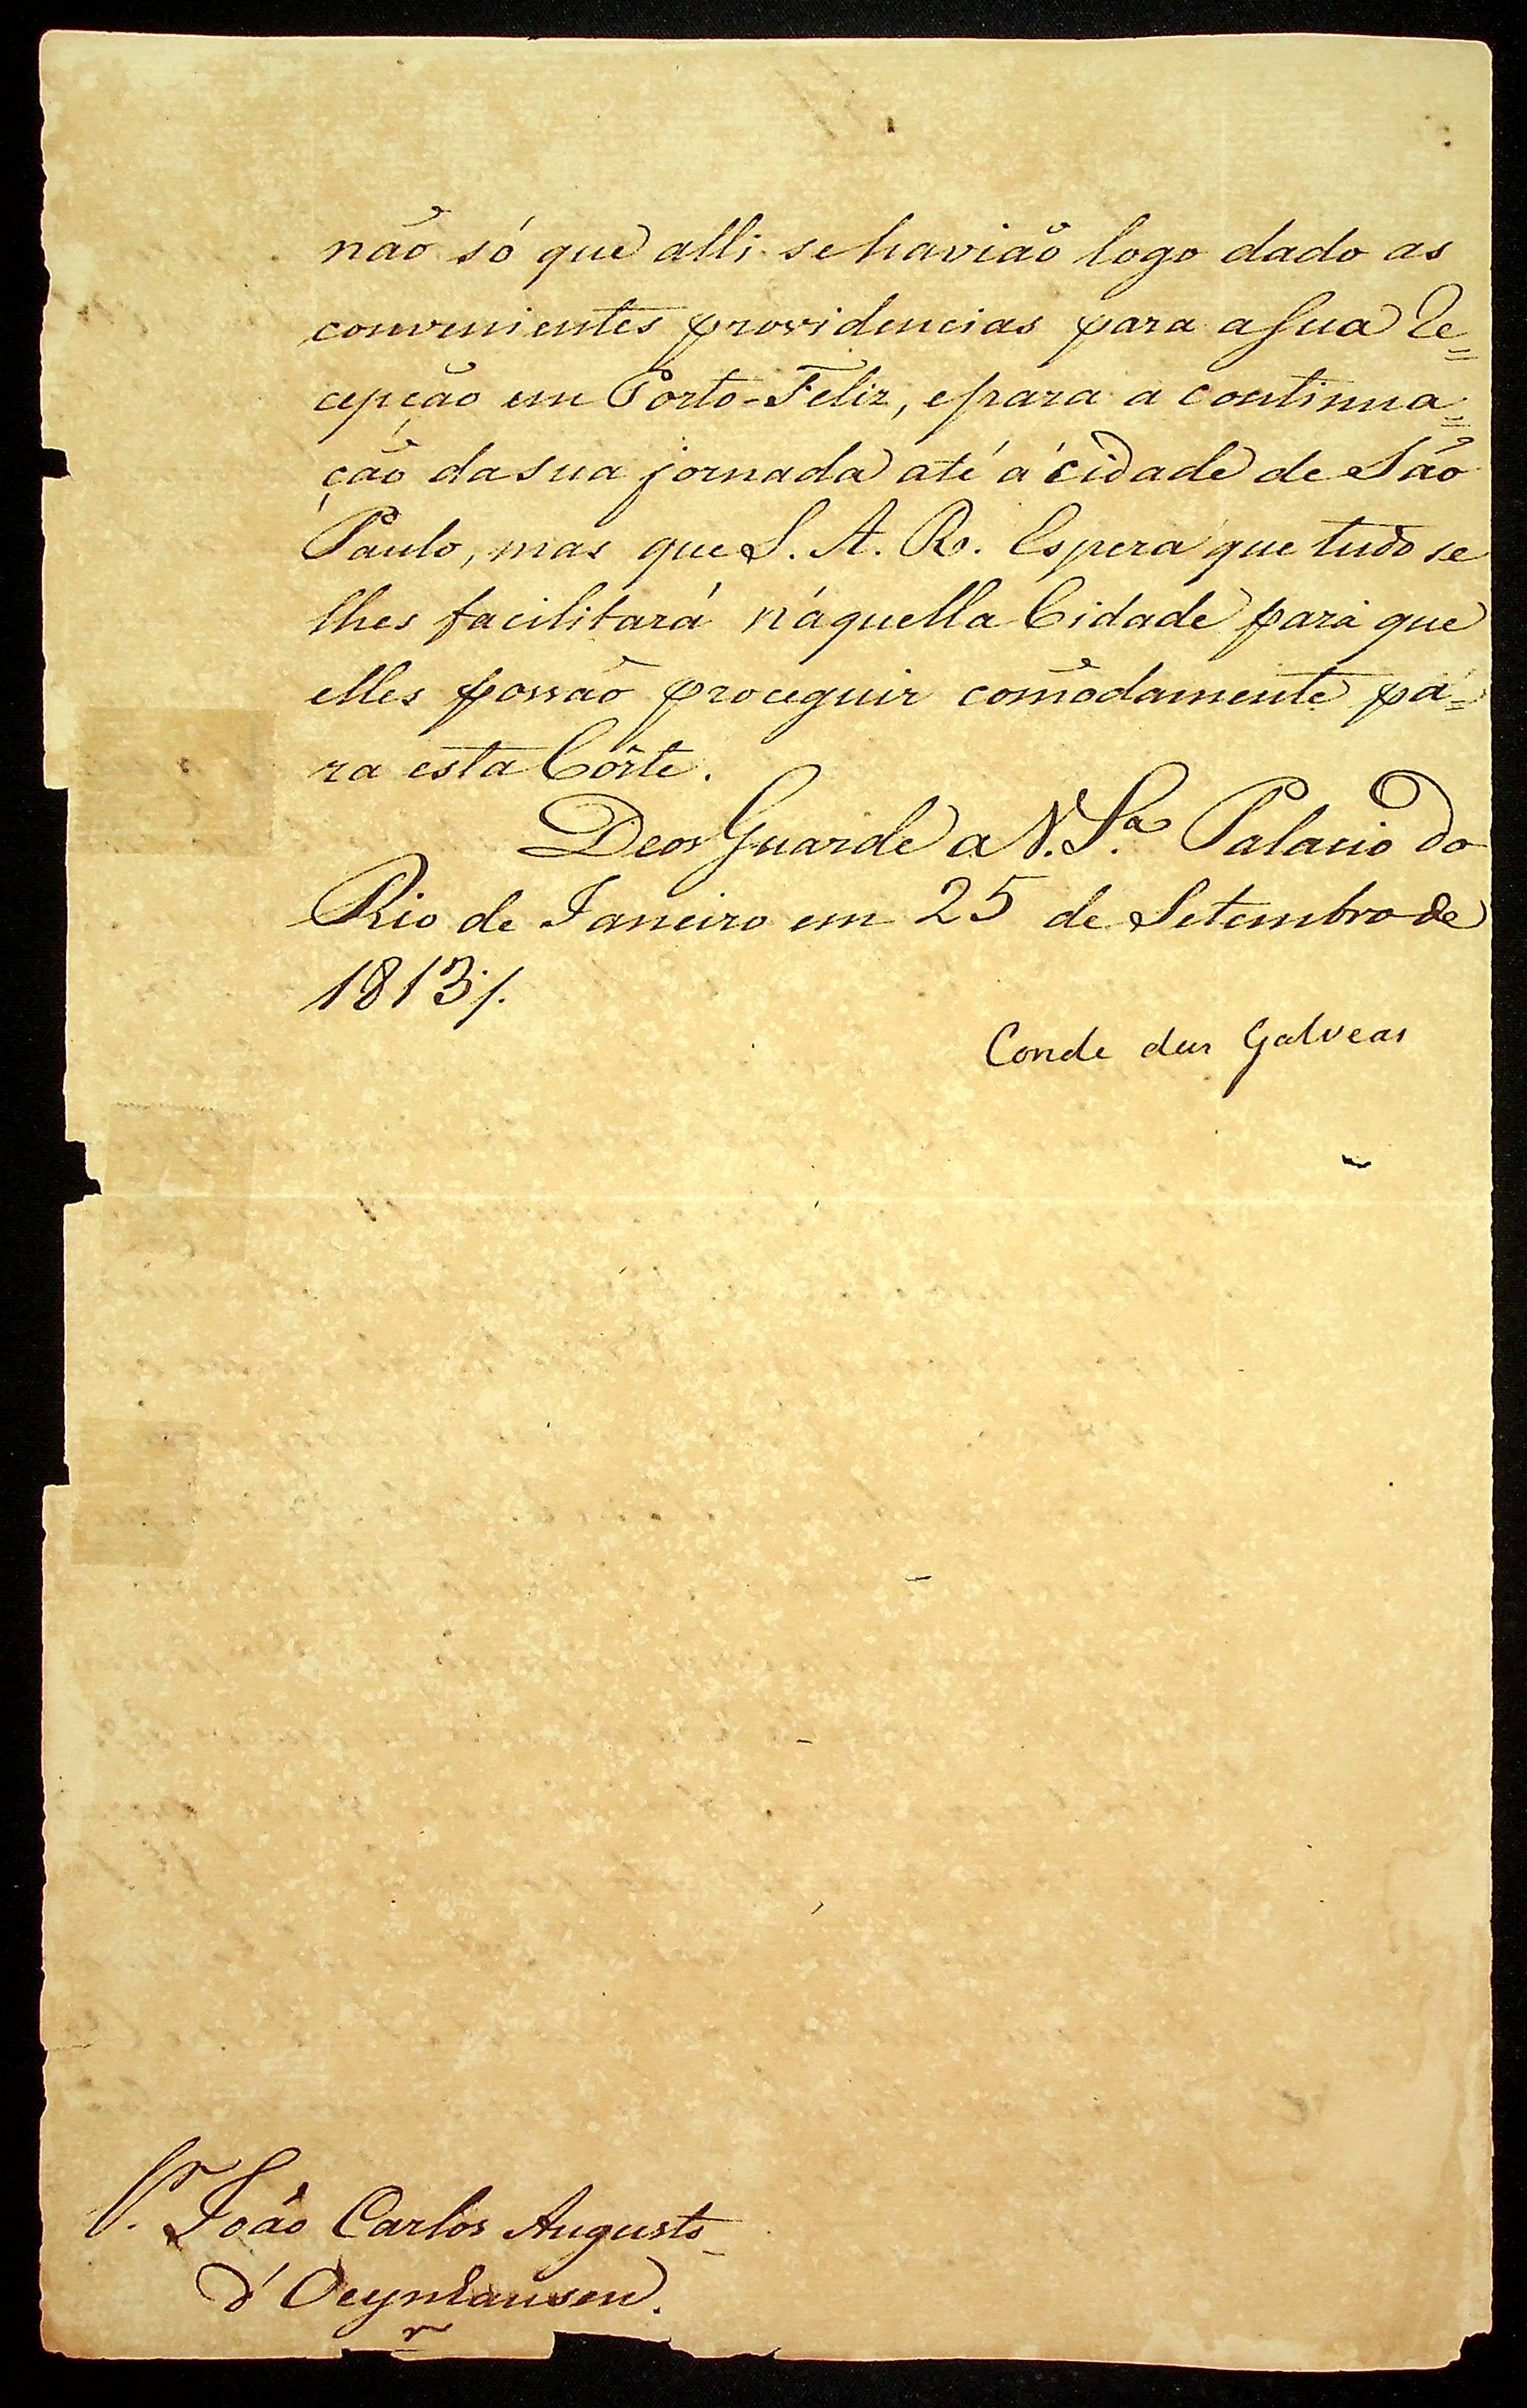 não só que alli se havião logo dado as
convenientes providencias para a Sua Re=
cepção em Porto-Feliz, e para a continua=
ção da sua jornada até á cidade de São
Paulo, mas que S. A. R. Espera que tudo se
lhes facilitará n'aquella Cidade para que
elles possão proceguir comõdamente pa=
ra esta Côrte.
Deos Guarde a V. S.ª Palacio do
Rio de Janeiro em 25 de Setembro de
1813 /.
Conde das Galveas
S.r João Carlos Augusto
d'Oeynhausen.